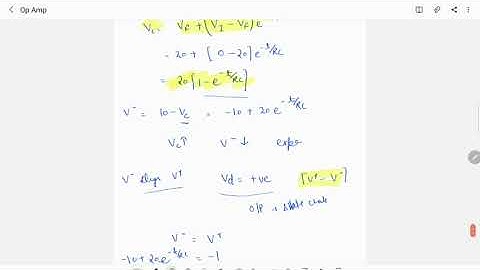 Op Amp
Vc = Vf + (VI - Vf)e
= 20 + [0-20]e^-t/RC
= 20[1-e^-t/RC]
V^- = 10-Vc = -10+20e^-t/RC
Vc↑ V^-↓ expo
V^- V^+ Vd = +ve [V^+ - V^-]
O/P state
V^- = V^+
-10+20e^-t/RC = -1